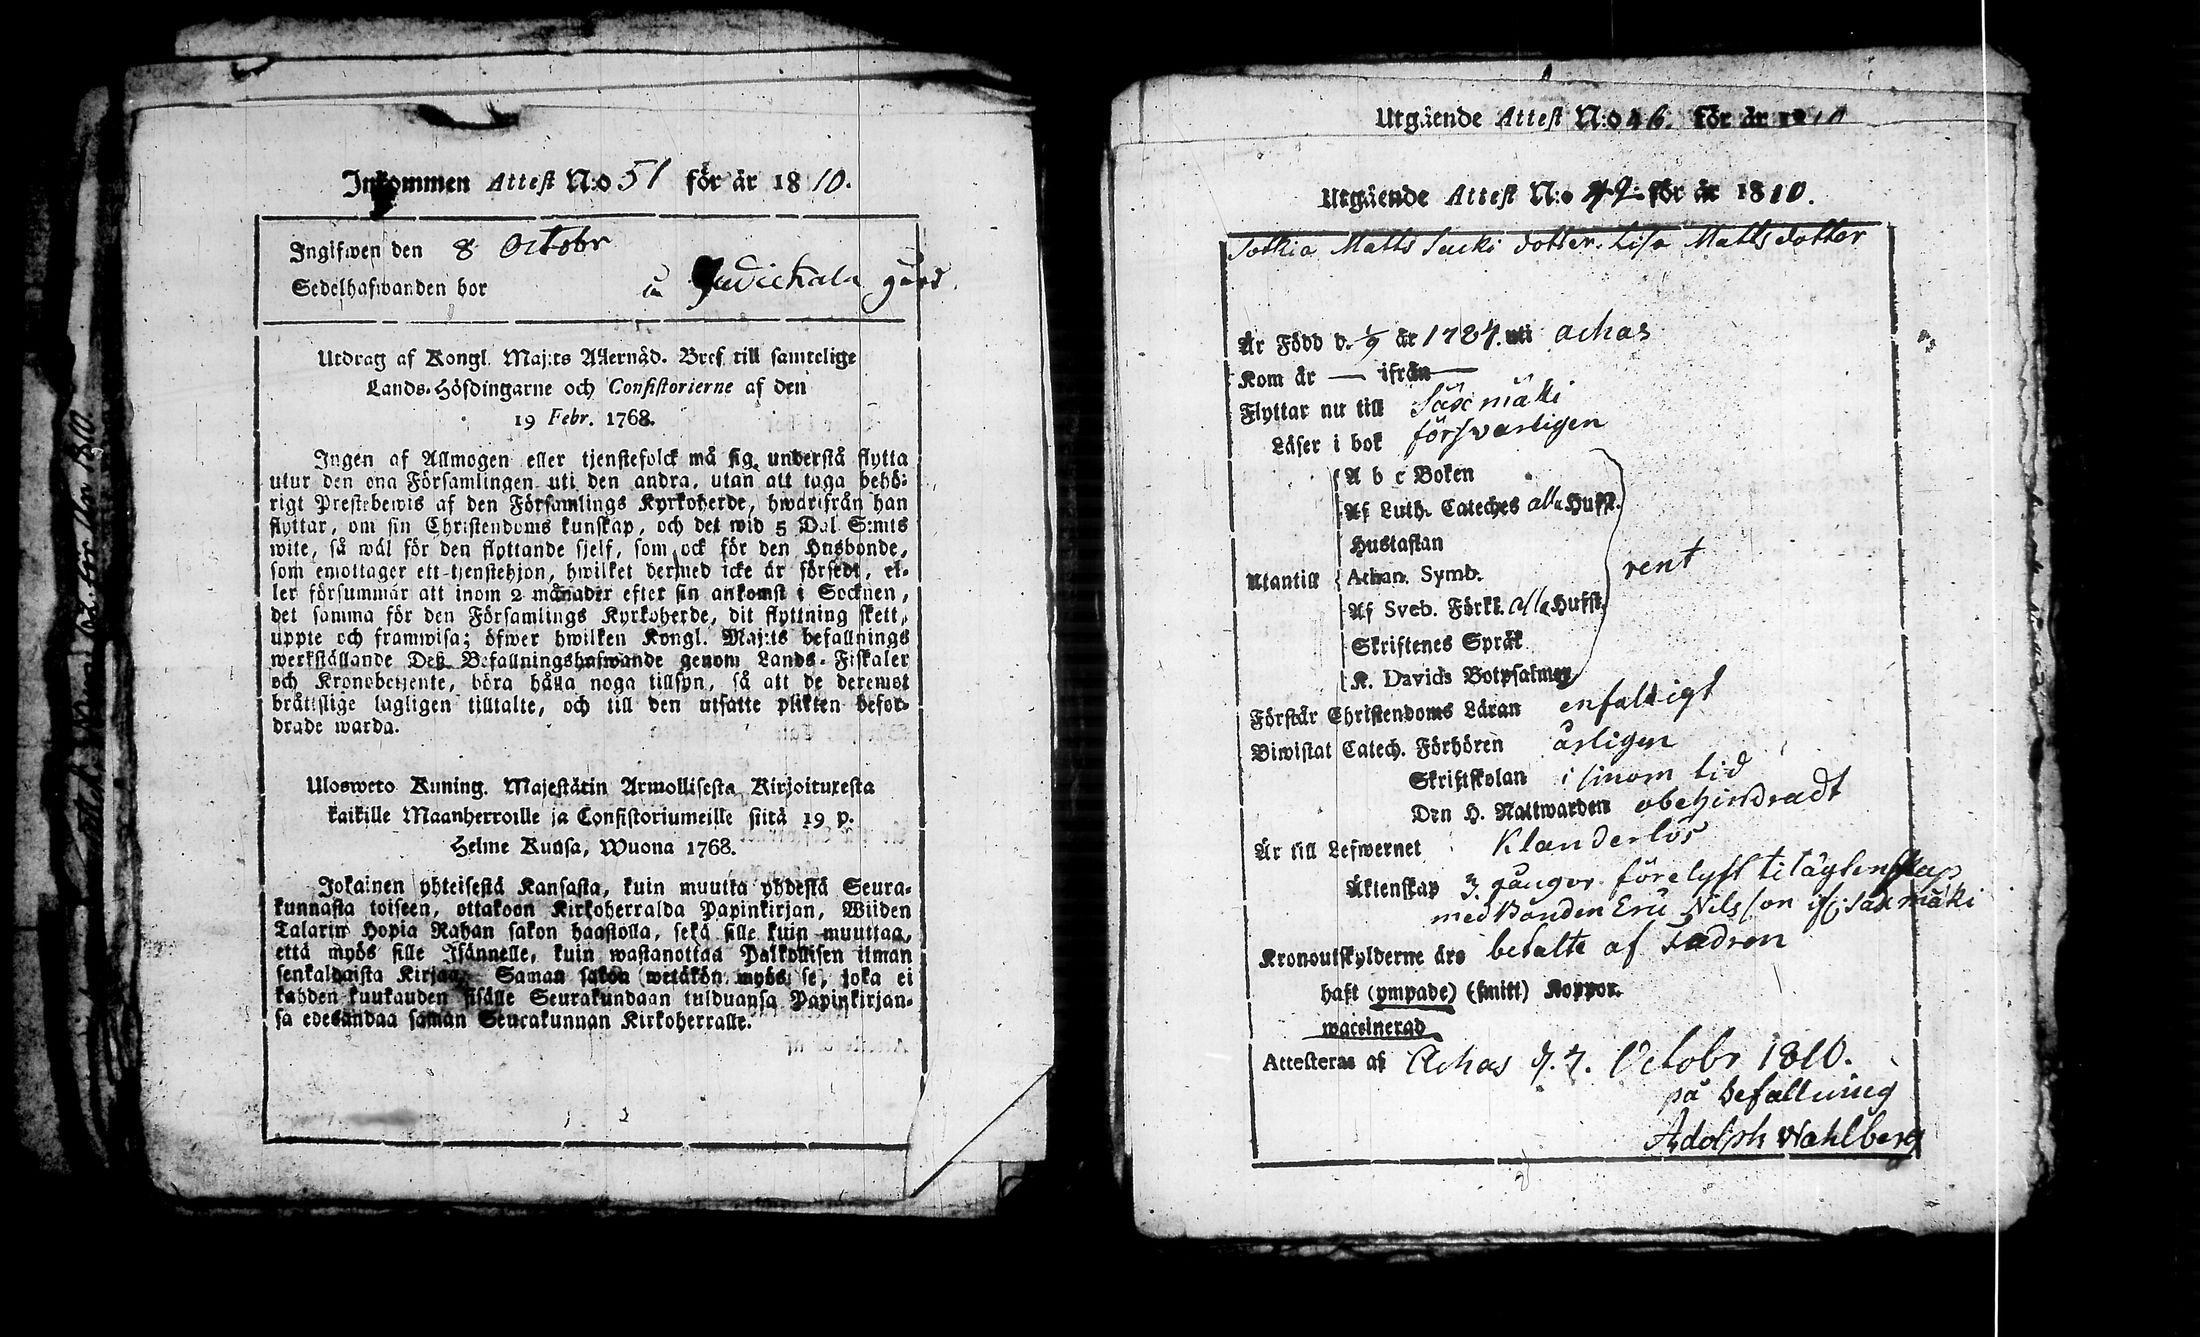 Inkommen Attest N:o 51 för år 1810.
Ingifwen den 8 Octobr
Sedelhafwanden bor gård.
Utdrag af Kongl. Maj:ts Allernåd. Bref till samtelige
Lands-Höfdingarne och Consistorierne af den
19 Febr. 1768.
Ingen af Allmogen eller tjenstefolck må sig understå flytta
utur den ena Församlingen uti den andra, utan att taga behö-
rigt Prestebewis af den Församlings Kyrkoherde, hwarifrån han
flyttar, om sin Christendoms kunskap, och det wid 5 Dal S:mts
wite, så wäl för den flyttande sjelf, som ock för den Husbonde,
som emottager ett tjenstehjon, hwilket dermed icke är försedt, el-
ler försummar att inom 2 månader efter sin ankomst i Socknen,
det samma för den Församlings Kyrkoherde, dit flyttning skett,
uppte och framwisa; öfwer hwilken Kongl. Maj:ts befallnings
werkställande Deß Befallningshafwande genom Lands-Fiskaler
och Kronobetjente, böra hålla noga tillsyn, så att de deremot
bråtslige lagligen tilltalte, och till den utsatte plikten befor-
drade warda.
Uloswеto Kuning. Majestätin Armollisesta Kirjoituxesta
kaikille Maanherroille ja Consistoriumeille siitä 19 p.
Helme Kuusa, Wuona 1768.
Jokainen yhteisestä Kansasta, kuin muutta yhdestä Seura-
kunnasta toiseen, ottakoon Kirkoherralda Papinkirjan, Wiiden
Talarin Hopia Rahan sakon haastolla, sekä sille kuin muuttaa,
että myös sille Isännelle, kuin wastanottaa Palkollisen ilman
senkaldaista Kirjaa. Saman sakon wetäkön myös se, joka ei
kahden kuukauden sisälle Seurakundaan tulduansa Papinkirjan-
sa edesandaa saman Seurakunnan Kirkoherralle.
Utgående Attest N:o 46. för år 1810
Utgående Attest N:o 49 för år 1810.
dotter. Lisa Mattsdotter
Är Född d. 1/9 år 1784. uti achas
Kom år — ifrån —
Flyttar nu till Säxmäki
Läser i bok försvarligen
A b c Boken
Af Luth. Cateches alla Hufst.
Hustaflan
Utantill Athan. Symb. rent
Af Sveb. Förkl. alla Hufst.
Skriftenes Språk
K. Davids Botpsalmer
Förstår Christendoms Läran enfaldigt
Biwistat Catech. Förhören årligen
Skriftskolan i sinom tid
Den H. Nattwarden obehindradt
Är till Lefwernet Klanderlös
Äktenskap 3 gånger förelyst til äglenskap
med Bonden Eric Nilsson Saxmäki
Kronoutskylderne äro betalte af Fadren
haft (ympade) (smitt) Koppor.
waccinerad
Attesteras af Achas d. 7. Octobr 1810.
på befallning
Adolph Wahlberg